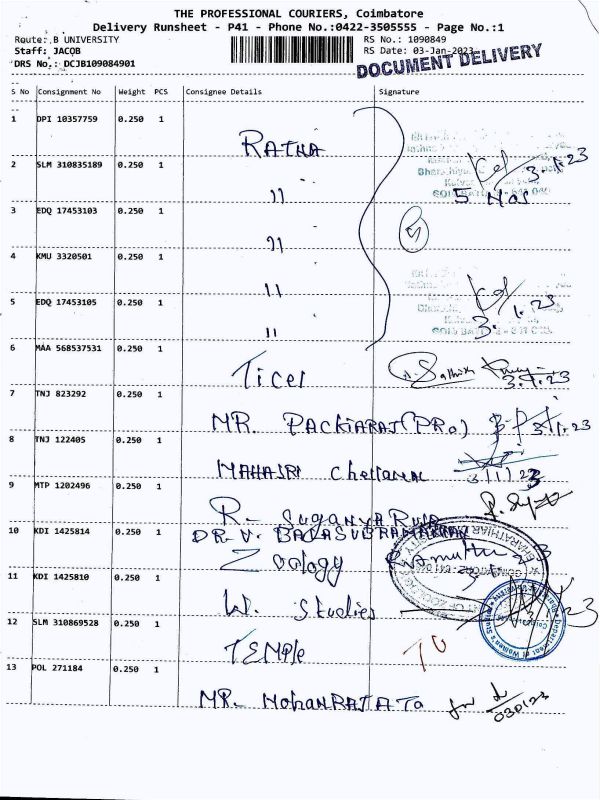 THE PROFESSIONAL COURIERS, Coimbatore
Delivery Runsheet - P41 - Phone No.:0422-3505555 - Page No.:1
Route: B UNIVERSITY RS No.: 1090849
Staff: JACOB RS Date: 03-Jan-2023
DRS No.: DCJB109084901 DOCUMENT DELIVERY
S No Consignment No Weight PCS Consignee Details Signature
1 DPI 10357759 0.250 1
RATHA
2 SLM 310835189 0.250 1 3.1.23
" 5 Nos
3 EDQ 17453103 0.250 1
" 5
4 KMU 3320501 0.250 1
"
5 EDQ 17453105 0.250 1 3.1.23
"
6 MAA 568537531 0.250 1
Ticel 3.1.23
7 TNJ 823292 0.250 1
MR. PACKIARAJ (PRO) 3.1.23
8 TNJ 122405 0.250 1
MAHASRI Chellamal 3/1/23
9 MTP 1202496 0.250 1
R. Suganya
10 KDI 1425814 0.250 1 DR.V. BALASUBRAMANIAN
Zoology
11 KDI 1425810 0.250 1
W. Studies
12 SLM 310869528 0.250 1
TEMPle
13 POL 271184 0.250 1
MR. MohanRAJATA 03/01/23